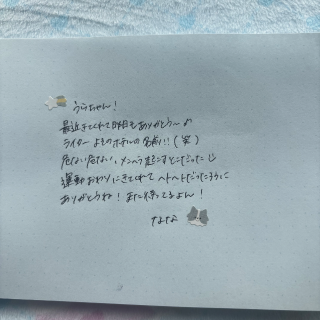 うらちゃん!
最近きてくれて昨日もありがとう〜
ライター よそのホテルの名前!!(笑)
危ない危ない、メンヘラ起こすとこだった
運動おわりにきてくれて ヘトヘトだっただろうに
ありがとうね!また待ってるよん!
なな